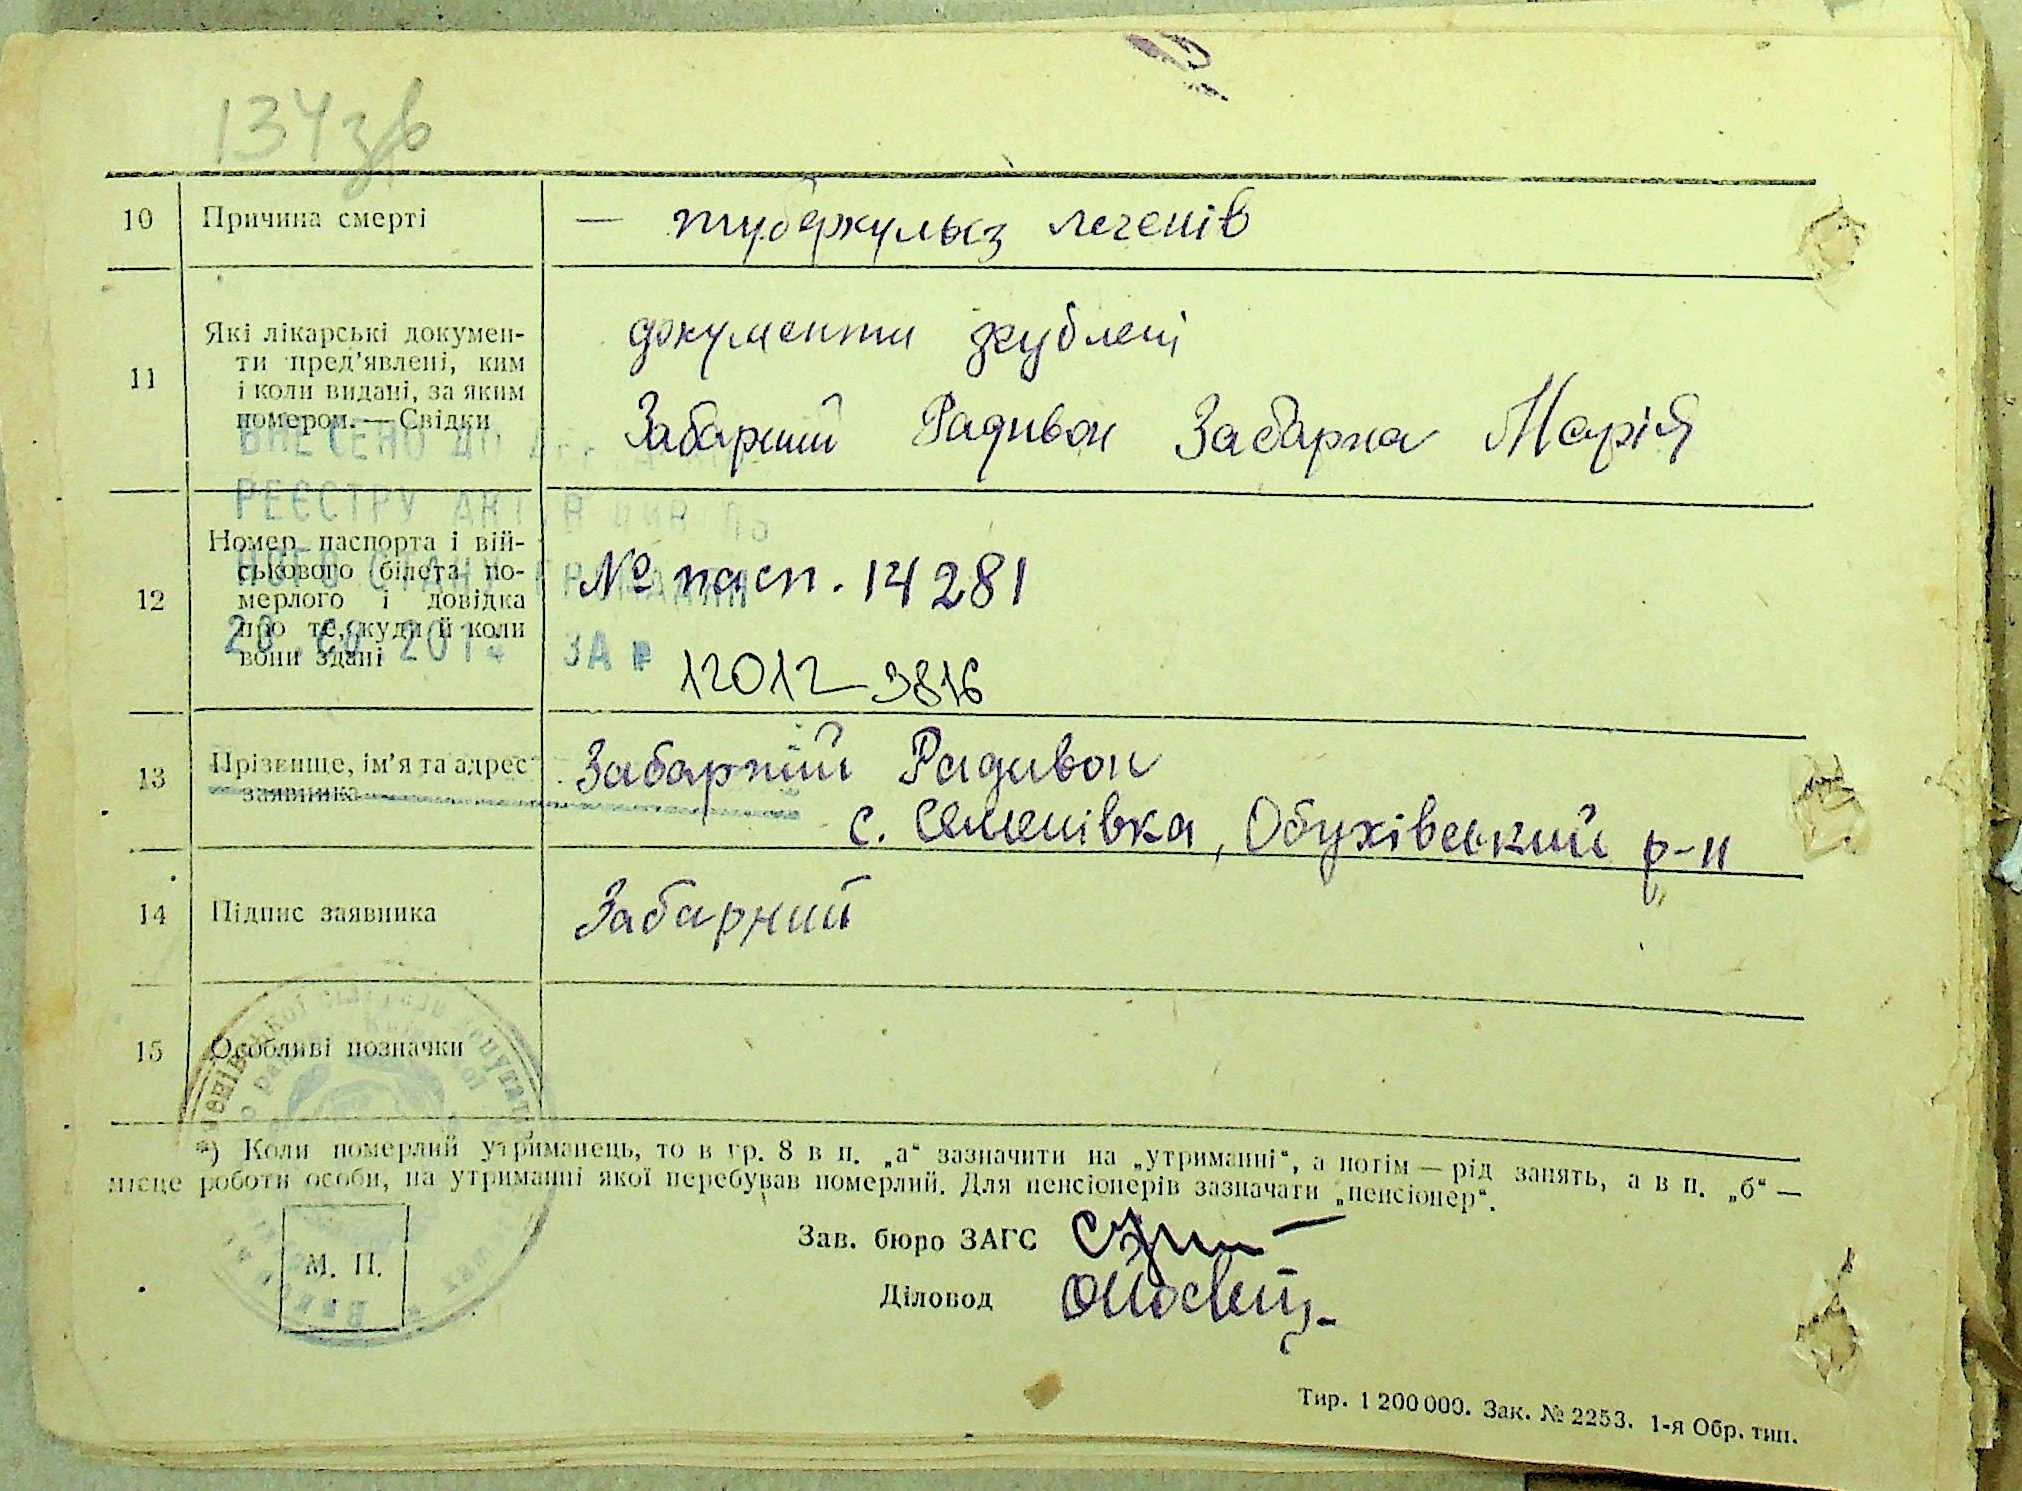 134зв
10 Причина смерті — туберкульоз легенів
11 Які лікарські докумен-
ти пред'явлені, ким
і коли видані, за яким
номером. — Свідки
документи згублені
Забарний Радивон Забарна Марія
ВНЕСЕНО ДО
РЕЄСТРУ АКТІВ
12 Номер паспорта і вій-
ськового білета по-
мерлого і довідка
про те, куди й коли
вони здані
№ пасп. 14281
ЗА №
12012 3816
13 Прізвище, ім'я та адрес
заявника
Забарний Радивон
с. Семенівка, Обухівський р-н
14 Підпис заявника Забарний
15 Особливі позначки
*) Коли померлий утриманець, то в гр. 8 в п. „а“ зазначити на „утриманні“, а потім — рід занять, а в п. „б“ —
місце роботи особи, на утриманні якої перебував померлий. Для пенсіонерів зазначати „пенсіонер“.
Зав. бюро ЗАГС
М. П.
Діловод
Тир. 1 200 000. Зак. № 2253. 1-я Обр. тип.